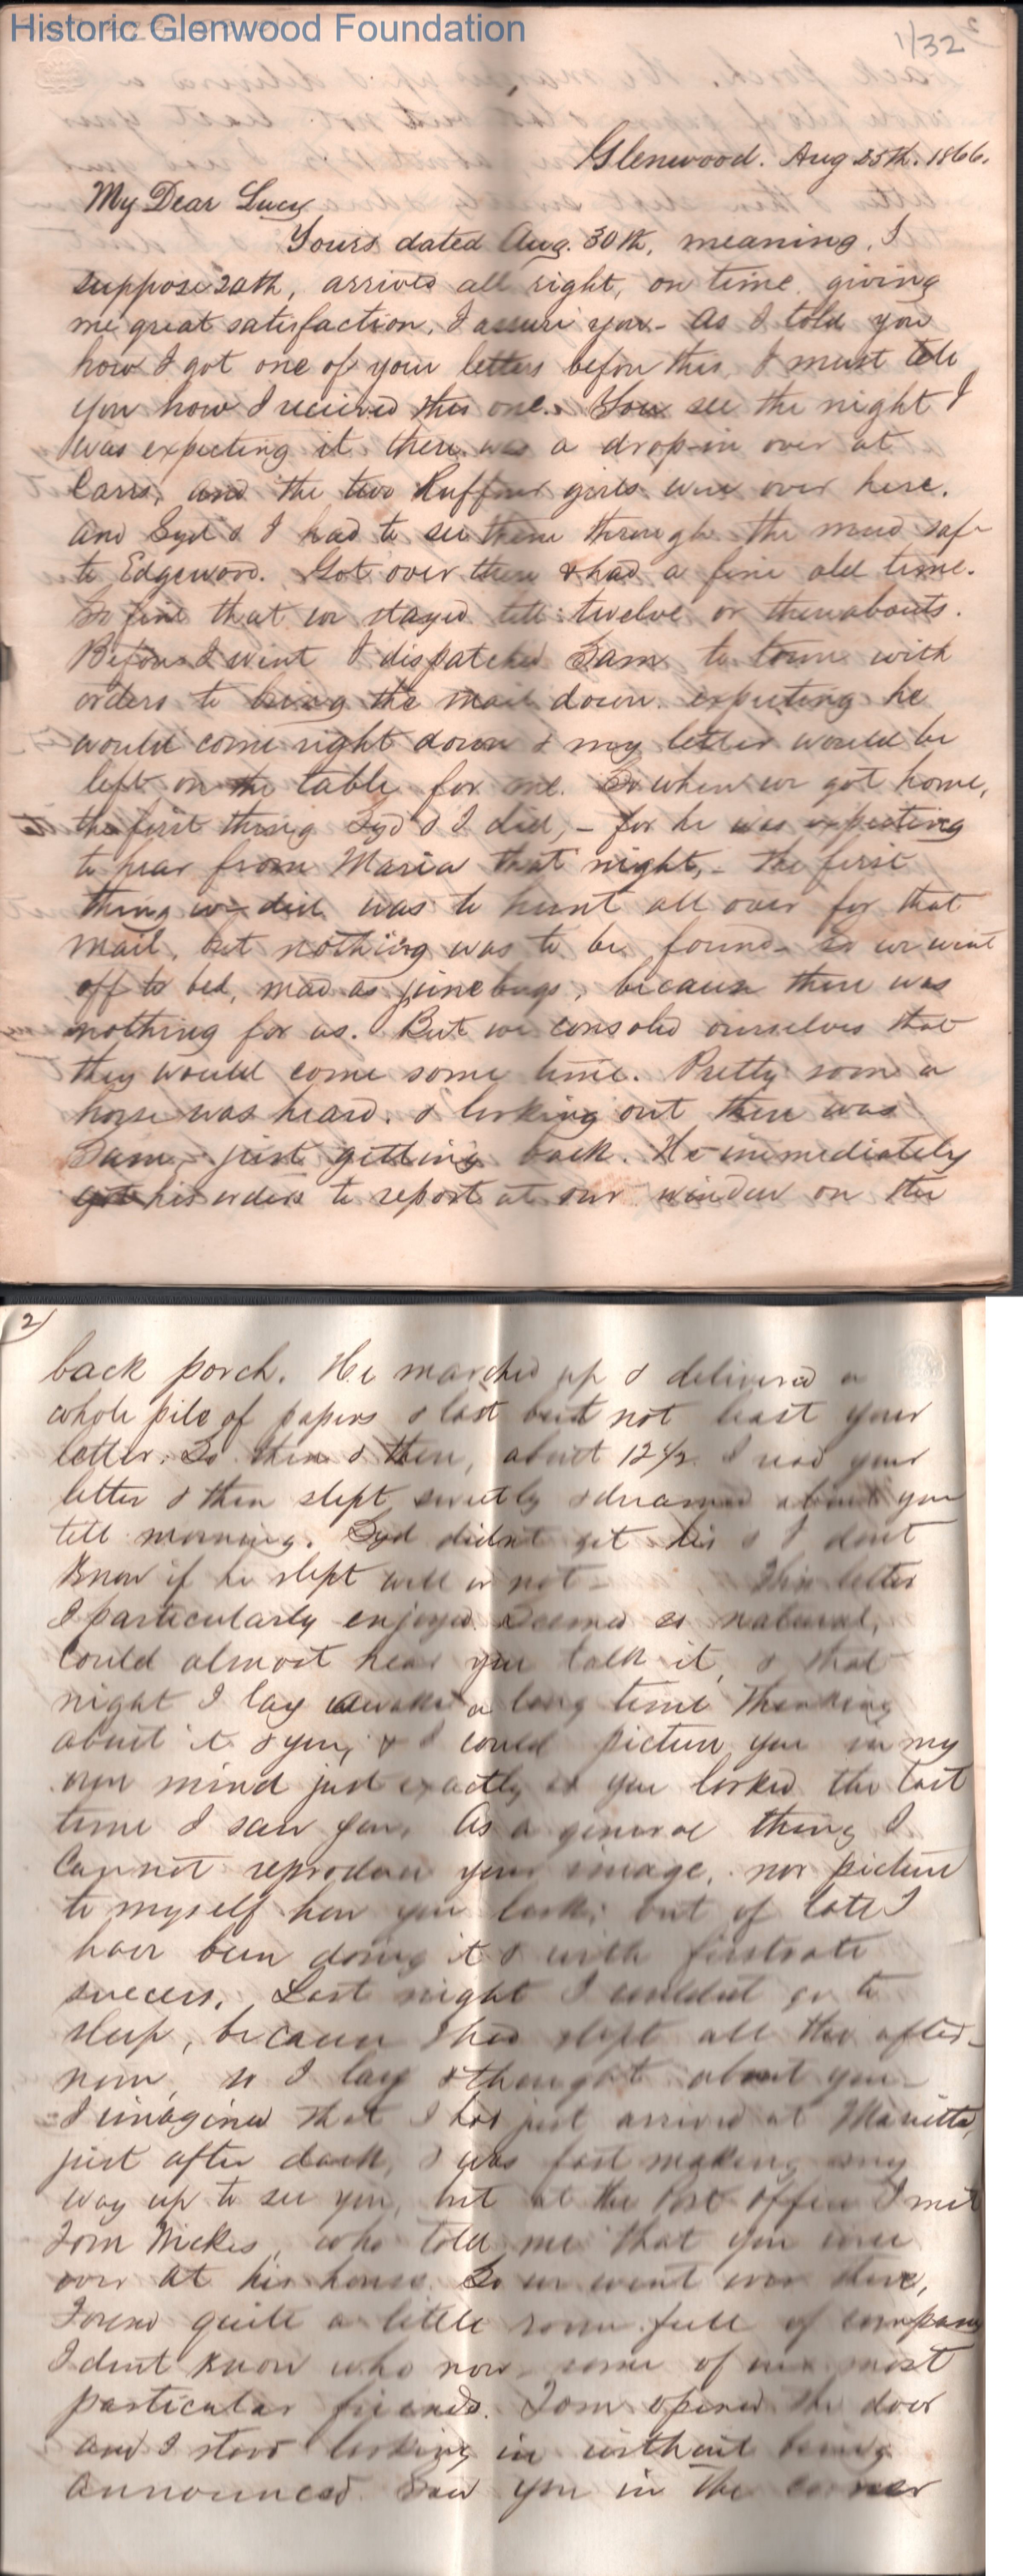 Historic Glenwood Foundation
1/32
Glenwood. Aug 25th. 1866.
My Dear Lucy
Yours dated Aug. 30th, meaning, I
suppose 20th, arrived all right, on time, giving
me great satisfaction, I assure you - As I told you
how I got one of your letters before this, I must tell
you how I received this one. You see the night I
was expecting it there was a drop-in over at
Carrs, and the two Ruffner girls were over here.
and Syd & I had to see them through the mud safe
to Edgewood. Got over there & had a fine old time.
So fine that we stayed till twelve or thereabouts.
Before I went I dispatched Sam to town with
orders to bring the mail down. expecting he
would come right down & my letter would be
left on the table for me. So when we got home,
the first thing Syd & I did, - for he was expecting
to hear from Maria that night, - the first
thing we did was to hunt all over for that
mail, but nothing was to be found - so we went
off to bed, mad as june bugs, because there was
nothing for us. But we consoled ourselves that
they would come some time. Pretty soon a
horse was heard, & looking out there was
Sam, just getting back. He immediately
got his orders to report at our window on the
2
back porch. He marched up & delivered a
whole pile of papers & last but not least your
letter. So then & then, about 12 1/2 I read your
letter & then slept sweetly & dreamed about you
till morning. Syd didnt get his & I dont
know if he slept well or not - This letter
I particularly enjoyed. Seemed so natural,
Could almost hear you talk it, & that
night I lay awake a long time thinking
about it & you, & I could picture you in my
own mind just exactly as you looked the last
time I saw you. As a general thing I
Cannot reproduce your image, nor picture
to myself how you look, but of late I
have been doing it & with firstrate
success. Last night I couldnt go to
sleep, because I had slept all the after-
noon, so I lay & thought about you -
I imagined that I had just arrived at Marietta,
just after dark, & was fast making my
way up to see you, but at the Post Office I met
Tom Nickes, who told me that you were
over at his house. So we went over there,
Found quite a little room full of company
I dont know who now - some of our most
particular friends. Tom opened the door
and I stood looking in without being
announced. Saw you in the corner